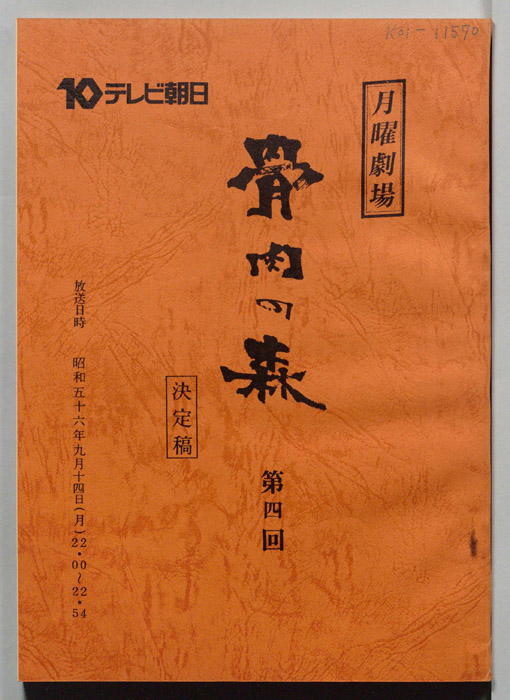 Koi-11570
10テレビ朝日
月曜劇場
骨肉の森
第四回
決定稿
放送日時 昭和五十六年九月十四日(月)22・00〜22・54